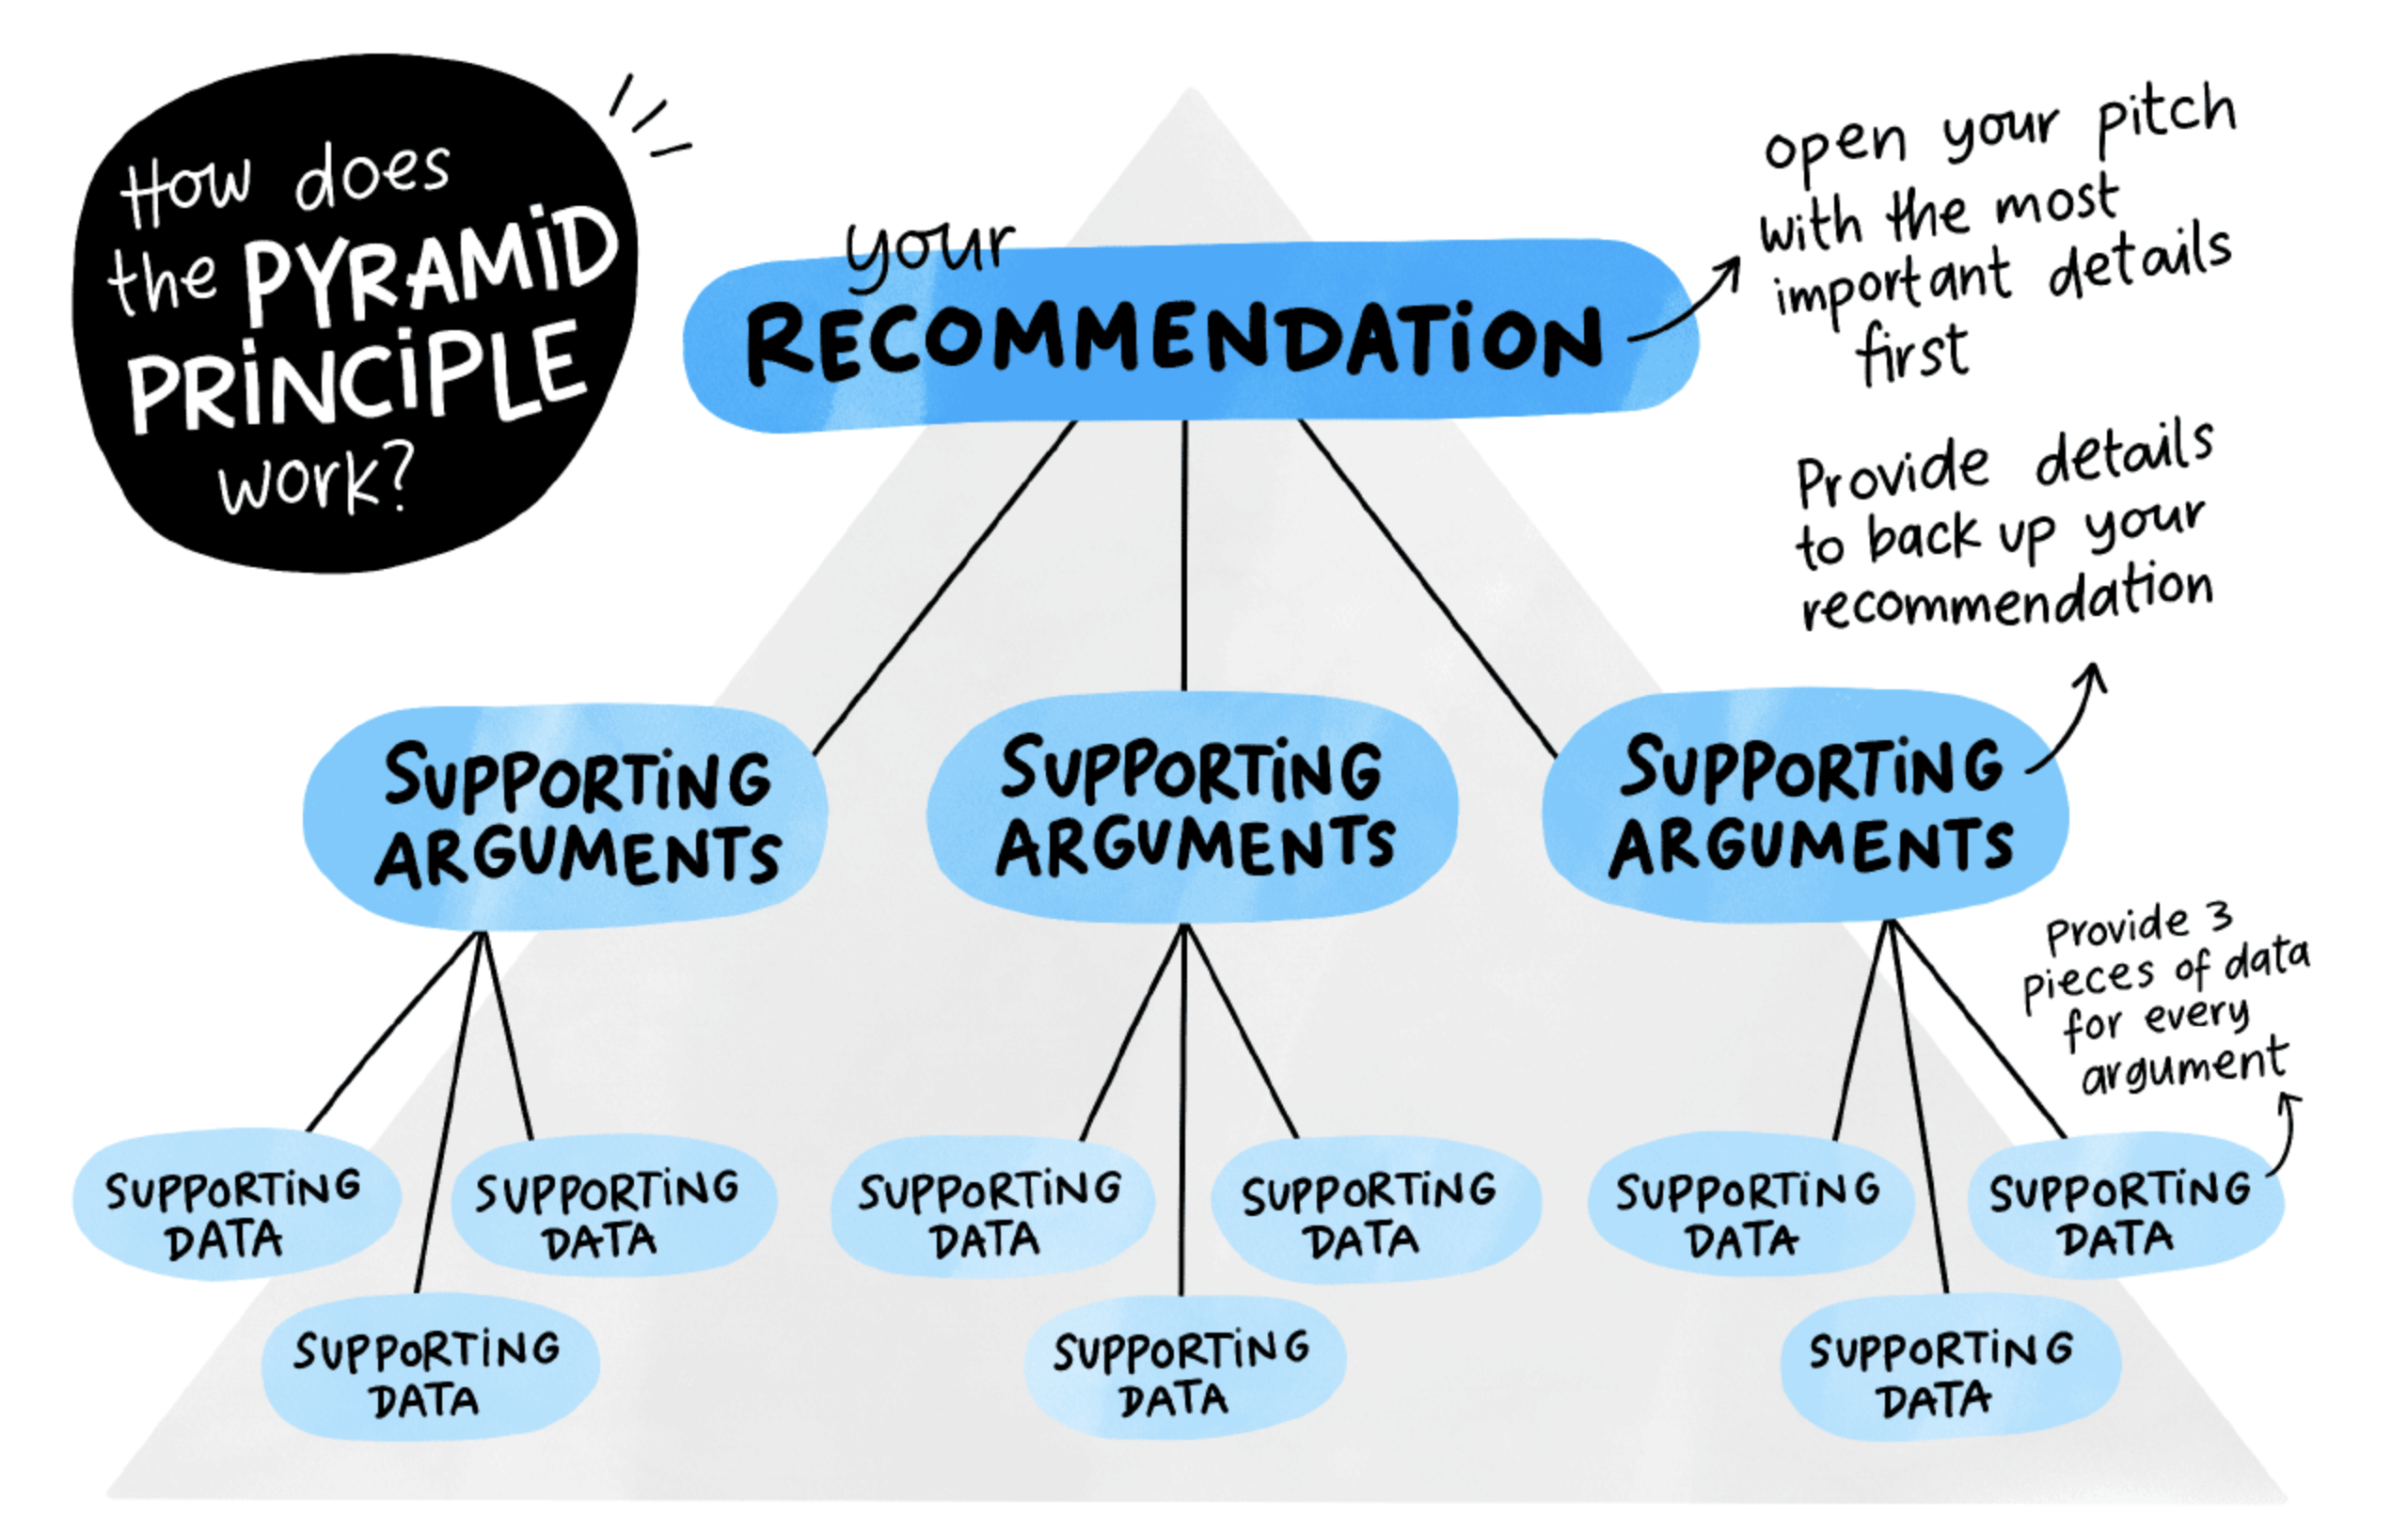 How does
the PYRAMiD
PRiNCiPLE
work?
your
RECOMMENDATiON
open your pitch
with the most
important details
first
Provide details
to back up your
recommendation
SUPPORTiNG
ARGUMENTS
SUPPORTiNG
ARGUMENTS
SUPPORTiNG
ARGUMENTS
Provide 3
pieces of data
for every
argument
SUPPORTiNG
DATA
SUPPORTiNG
DATA
SUPPORTiNG
DATA
SUPPORTiNG
DATA
SUPPORTiNG
DATA
SUPPORTiNG
DATA
SUPPORTiNG
DATA
SUPPORTiNG
DATA
SUPPORTiNG
DATA